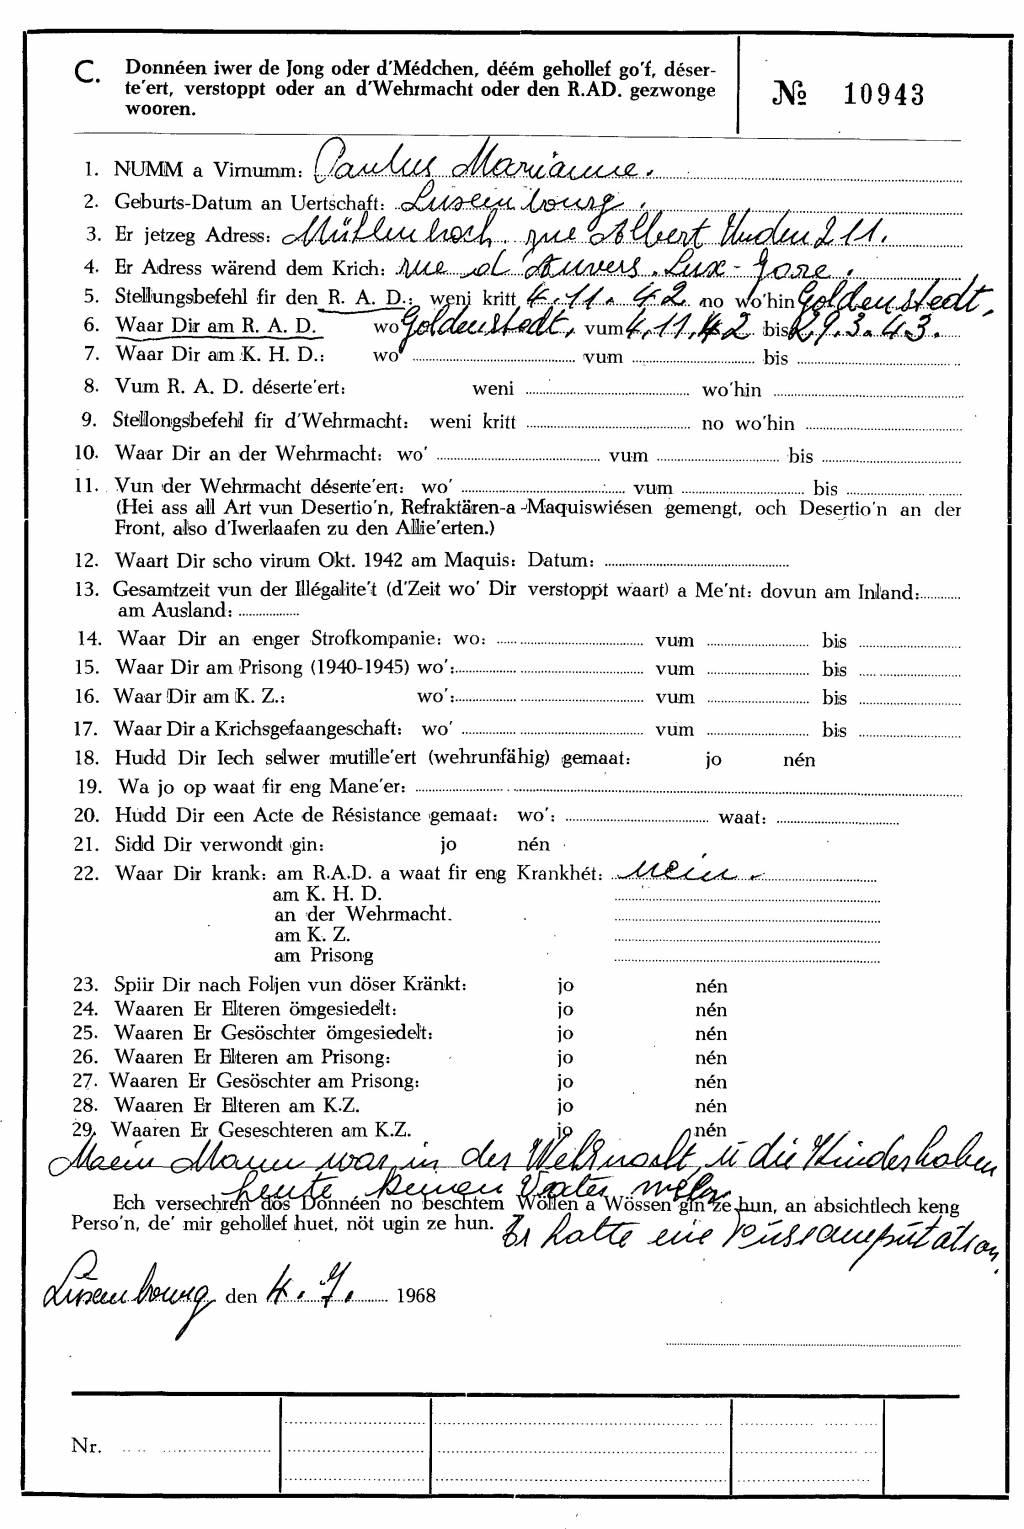 C. Donnéen iwer de Jong oder d'Médchen, déém gehollef go'f, déser-
te'ert, verstoppt oder an d'Wehrmacht oder den R.AD. gezwonge
wooren.
№ 10943
1. NUMM a Virnumm: Paulus Marianne.
2. Geburts-Datum an Uertschaft: Luxembourg.
3. Er jetzeg Adress: Mühlenbach, rue Albert Unden 211.
4. Er Adress wärend dem Krich: rue d'Anvers. Lux-Gare.
5. Stellungsbefehl fir den R. A. D.: weni kritt 4.11.42 no wo'hin Goldenstedt,
6. Waar Dir am R. A. D. wo Goldenstedt, vum 4.11.42 bis 29.3.43.
7. Waar Dir am K. H. D.: wo' vum bis
8. Vum R. A. D. déserte'ert: weni wo'hin
9. Stellongsbefehl fir d'Wehrmacht: weni kritt no wo'hin
10. Waar Dir an der Wehrmacht: wo' vum bis
11. Vun der Wehrmacht déserte'ert: wo' vum bis
(Hei ass all Art vun Desertio'n, Refraktären-a -Maquiswiésen gemengt, och Desertio'n an der
Front, also d'Iwerlaafen zu den Allie'erten.)
12. Waart Dir scho virum Okt. 1942 am Maquis: Datum:
13. Gesamtzeit vun der Illégalite't (d'Zeit wo' Dir verstoppt waart) a Me'nt: dovun am Inland:
am Ausland:
14. Waar Dir an enger Strofkompanie: wo: vum bis
15. Waar Dir am Prisong (1940-1945) wo': vum bis
16. Waar Dir am K. Z.: wo': vum bis
17. Waar Dir a Krichsgefaangeschaft: wo' vum bis
18. Hudd Dir Iech selwer mutille'ert (wehrunfähig) gemaat: jo nén
19. Wa jo op waat fir eng Mane'er:
20. Hudd Dir een Acte de Résistance gemaat: wo': waat:
21. Sidd Dir verwondt gin: jo nén
22. Waar Dir krank: am R.A.D. a waat fir eng Krankhét: nein.
am K. H. D.
an der Wehrmacht.
am K. Z.
am Prisong
23. Spiir Dir nach Foljen vun döser Kränkt: jo nén
24. Waaren Er Elteren ömgesiedelt: jo nén
25. Waaren Er Gesöschter ömgesiedelt: jo nén
26. Waaren Er Elteren am Prisong: jo nén
27. Waaren Er Gesöschter am Prisong: jo nén
28. Waaren Er Elteren am K.Z. jo nén
29. Waaren Er Geseschteren am K.Z. jo nén
Mein Mann war in der Wehrmacht, u die Kinder haben
heute keinen Vater mehr
Ech versechren dös Donnéen no beschtem Wöllen a Wössen gin ze hun, an absichtlech keng
Perso'n, de' mir gehollef huet, nöt ugin ze hun. Er hatte eine Fussamputation.
Luxembourg den 4. 7. 1968
Nr.